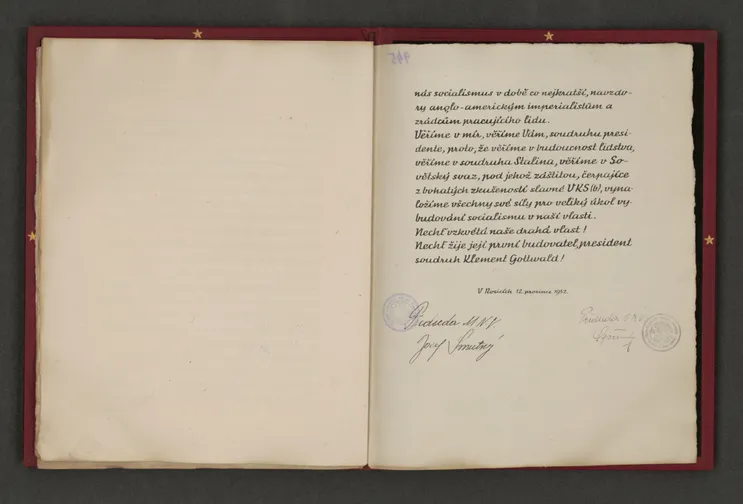 nás socialismus v době co nejkratší, navzdo-
ry anglo-americkým imperialistům a
zrádcům pracujícího lidu.
Věříme v mír, věříme Vám, soudruhu presi-
dente, proto, že věříme v budoucnost lidstva,
věříme v soudruha Stalina, věříme v So-
větský svaz, pod jehož záštitou, čerpajíce
z bohatých zkušeností slavné VKS(b), vyna-
ložíme všechny své síly pro veliký úkol vy-
budování socialismu v naší vlasti.
Nechť vzkvétá naše drahá vlast!
Nechť žije její první budovatel, president
soudruh Klement Gottwald!
12. prosince 1952.
Předseda MNV.
Josef Smutný
Předseda